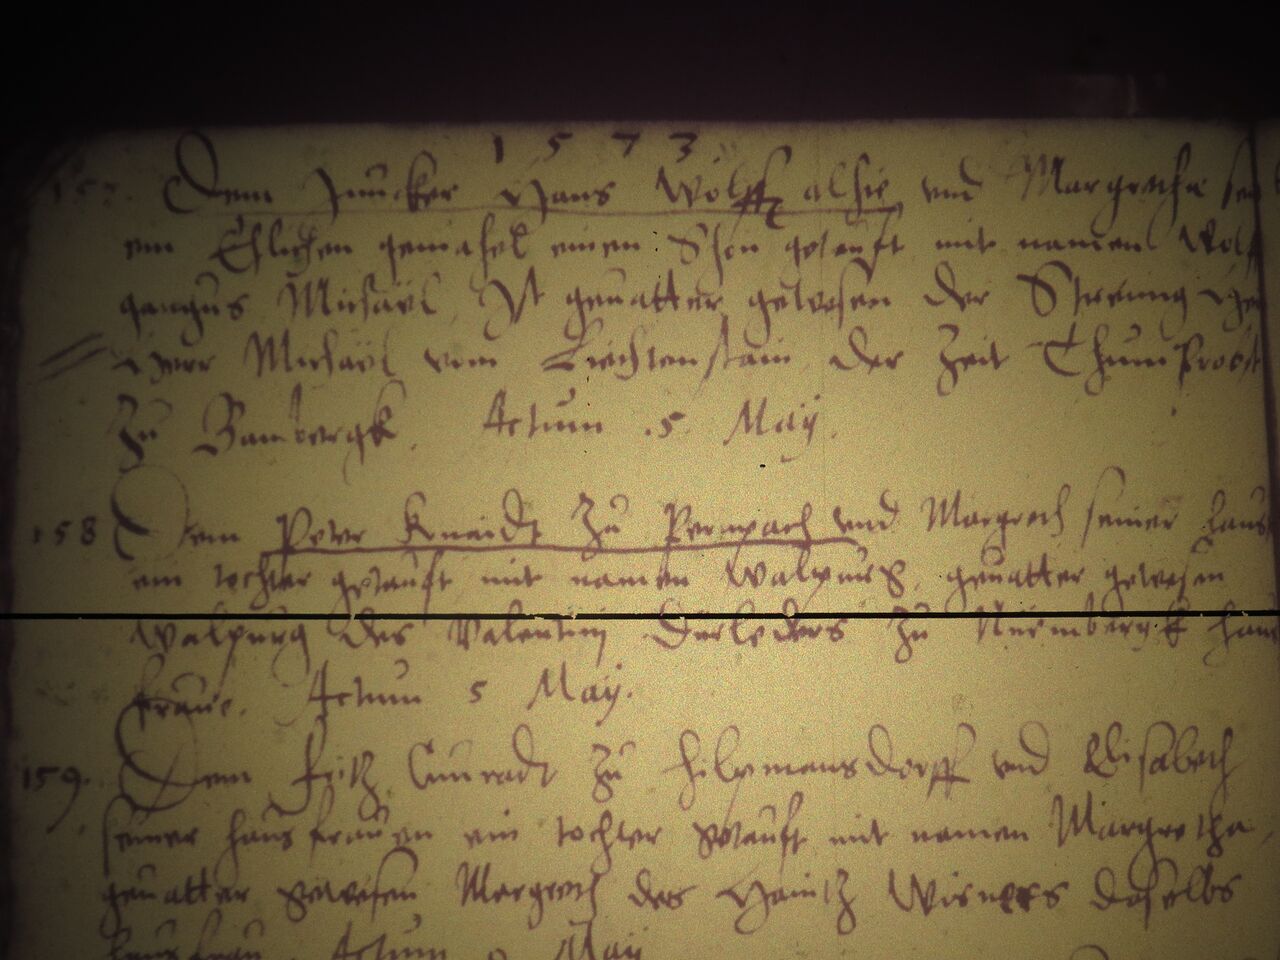 1573
Dem Juncker Hans Wolff alhie, vnd Margretha
ein Ehlichen gemahel einen Shon getaufft mit namen Wolf
gangus Michaël, Ist geuatter gewesen der
Herr Michaël vom Liechtenstain, der Zeit Thumbrobst
Zu Bambergk. Actum .5. Maij.
158 Dem Peter Kneidt Zu vnd Margreth seiner haus
ein tochter getaufft mit namen Walpurg, geuatter gewesen
Walpurg des Valentin Zu Nürmbergk haus
fraue. Actum 5 Maij.
159. Dem Fritz Cunradt Zu Hilpmansdorff vnd Elisabeth
seiner hausfrauen ein tochter getaufft mit namen Margretha
geuatter gewesen Margreth des Haintz daselbs
hausfrau. Actum Maij